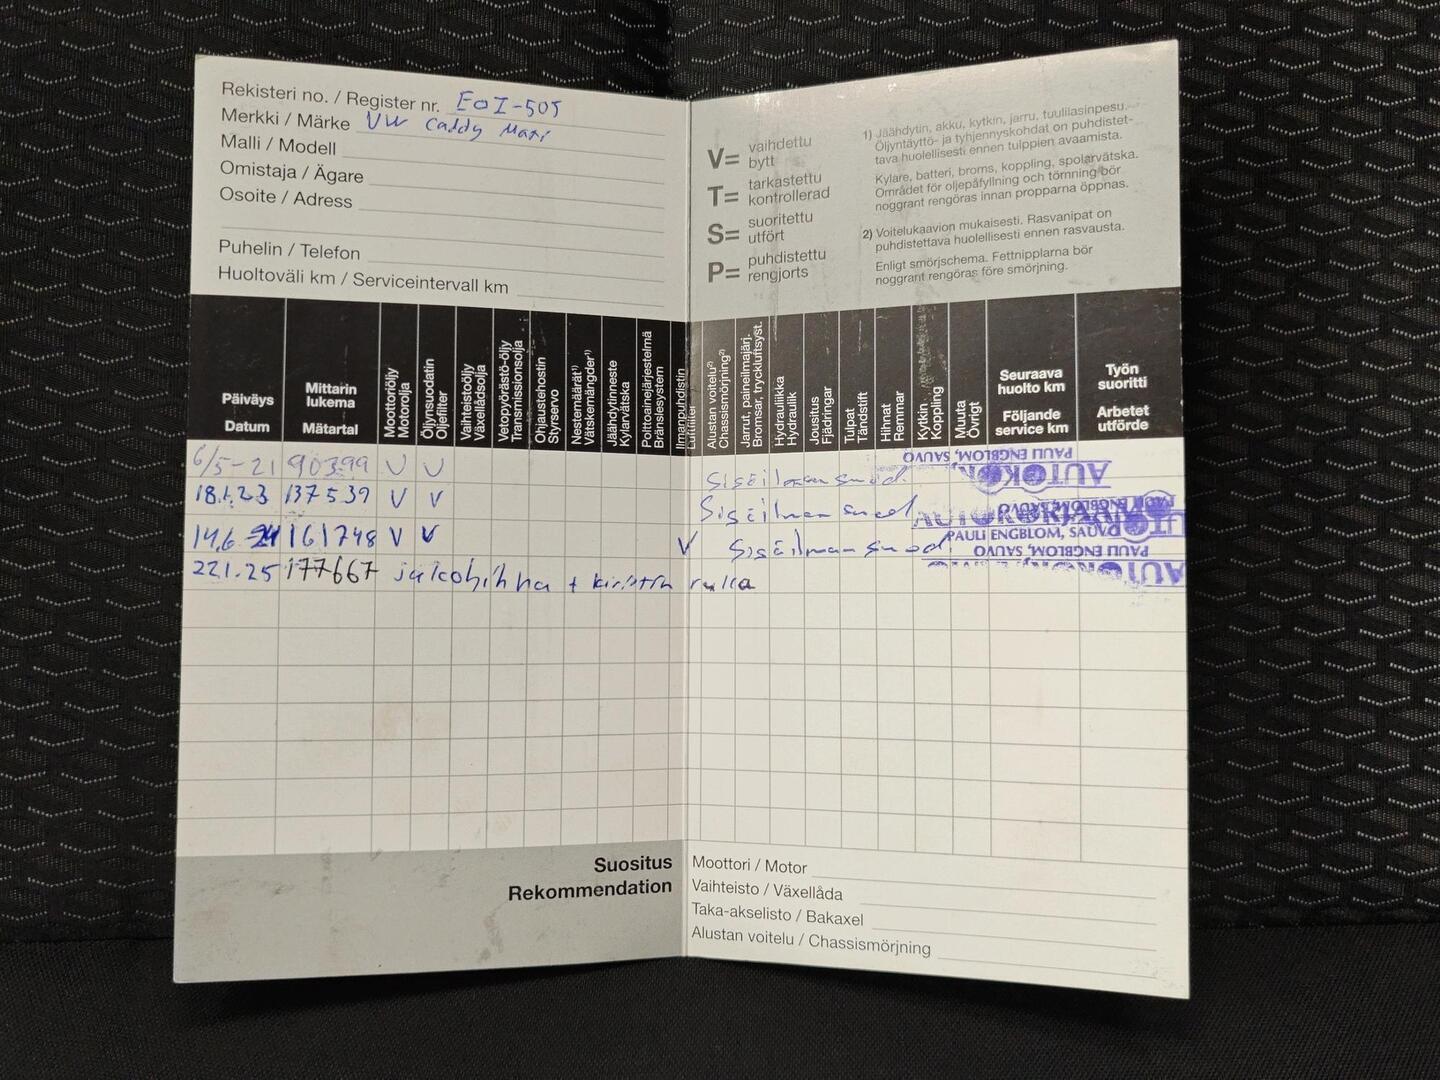 Rekisteri no. / Register nr. EOI-505
Merkki / Märke VW Caddy Maxi
Malli / Modell
Omistaja / Ägare
Osoite / Adress
Puhelin / Telefon
Huoltoväli km / Serviceintervall km
V= vaihdettu
bytt
T= tarkastettu
kontrollerad
S= suoritettu
utfört
P= puhdistettu
rengjorts
1) Jäähdytin, akku, kytkin, jarru, tuulilasinpesu.
Öljyntäyttö- ja tyhjennyskohdat on puhdistet-
tava huolellisesti ennen tulppien avaamista.
Kylare, batteri, broms, koppling, spolarvätska.
Området för oljepåfyllning och tömning bör
noggrant rengöras innan propparna öppnas.
2) Voitelukaavion mukaisesti. Rasvanipat on
puhdistettava huolellisesti ennen rasvausta.
Enligt smörjschema. Fettnipplarna bör
noggrant rengöras före smörjning.
Päiväys
Datum
Mittarin
lukema
Mätartal
Moottoriöljy
Motorolja
Öljynsuodatin
Oljefilter
Vaihteistoöljy
Växellådsolja
Vetopyörästö-öljy
Transmissionsolja
Ohjaustehostin
Styrservo
Nestemäärät¹⁾
Vätskemängder¹⁾
Jäähdytinneste
Kylarvätska
Polttoainejärjestelmä
Bränslesystem
Ilmanpuhdistin
Luftfilter
Alustan voitelu²⁾
Chassismörjning²⁾
Jarrut, paineilmajärj.
Bromsar, tryckluftsyst.
Hydrauliikka
Hydraulik
Jousitus
Fjädringar
Tulpat
Tändstift
Hihnat
Remmar
Kytkin
Koppling
Muuta
Övrigt
Seuraava
huolto km
Följande
service km
Työn
suoritti
Arbetet
utförde
6/5-21 90399 V V Sisäilman suod.
PAULI ENGBLOM, SAUVO
18.1.23 137539 V V Sisäilman suod
14.6 24 161748 V V V Sisäilman suod.
PAULI ENGBLOM, SAUVO
PAULI ENGBLOM, SAUVO
22.1.25 177667 jakohihna + kiristin rulla
Suositus
Rekommendation
Moottori / Motor
Vaihteisto / Växellåda
Taka-akselisto / Bakaxel
Alustan voitelu / Chassismörjning